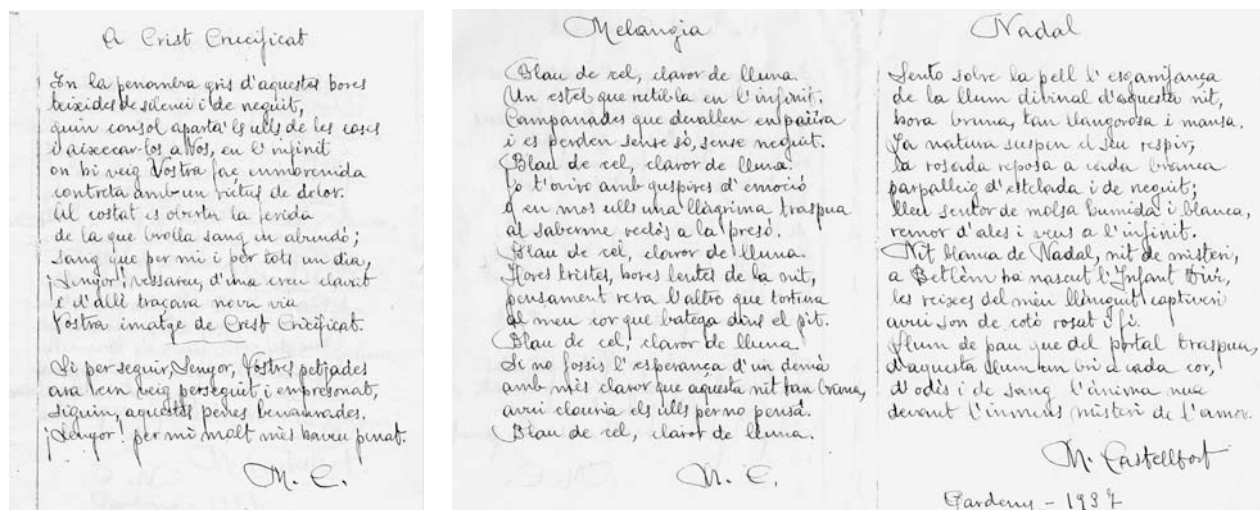 A Crist Crucificat
En la penombra gris d'aquestes hores
teixides de silenci i de neguit,
quin consol apartà'ls ulls de les coses
i aixecar-los a Vos, en l'infinit
on hi veig Vostra faç enmorenida
contreta amb un rictus de dolor.
Al costat es oberta la ferida
de la que brolla sang en abundó;
sang que per mi i per tots un dia,
¡Senyor! vessareu, d'una creu clavat
i d'allí traçara nova via
Vostra imatge de Crist Crucificat.
Si per seguir, Senyor, Vostres petjades
ara se'm veig perseguit i empresonat,
siguin, aquestes penes benaurades.
¡Senyor! per mi molt mès haveu penat.
M. C.
Melangia
Blau de cel, claror de lluna.
Un estel que rutil·la en l'infinit.
Campanades que devallen
i es perden sense só, sense neguit.
Blau de cel, claror de lluna.
Jo t'oviro amb guspires d'emoció
q'en mos ulls una llàgrima traspua
al saberme reclòs a la presó.
Blau de cel, claror de lluna.
Hores tristes, hores lentes de la nit,
pensament rera l'altre que tortura
al meu cor que batega dins el pit.
Blau de cel, claror de lluna
Si no fossis l'esperança d'un demà
amb mès claror que aquesta nit tan bruna,
avui clouria els ulls per no pensà.
Blau de cel, claror de lluna.
M. C.
Nadal
Sento sobre la pell l'esgarrifança
de la llum divinal d'aquesta nit,
hora bruna, tan llangorosa i mansa.
La natura suspen el seu respir,
la rosada reposa a cada branca
parpalleig d'estelada i de neguit;
lleu sentor de molsa humida i blanca,
remor d'ales i veus a l'infinit.
Nit blanca de Nadal, nit de misteri,
a Betlèm ha nascut l'Infant Diví,
les reixes del meu llanguit captiveri
avui son de cotó rosat i fí.
Llum de pau que del portal traspua,
d'aquesta llum un bri a cada cor,
d'odis i de sang l'ànima nua
devant l'inmens misteri de l'amor.
M. Castellfort
Gardeny - 1937